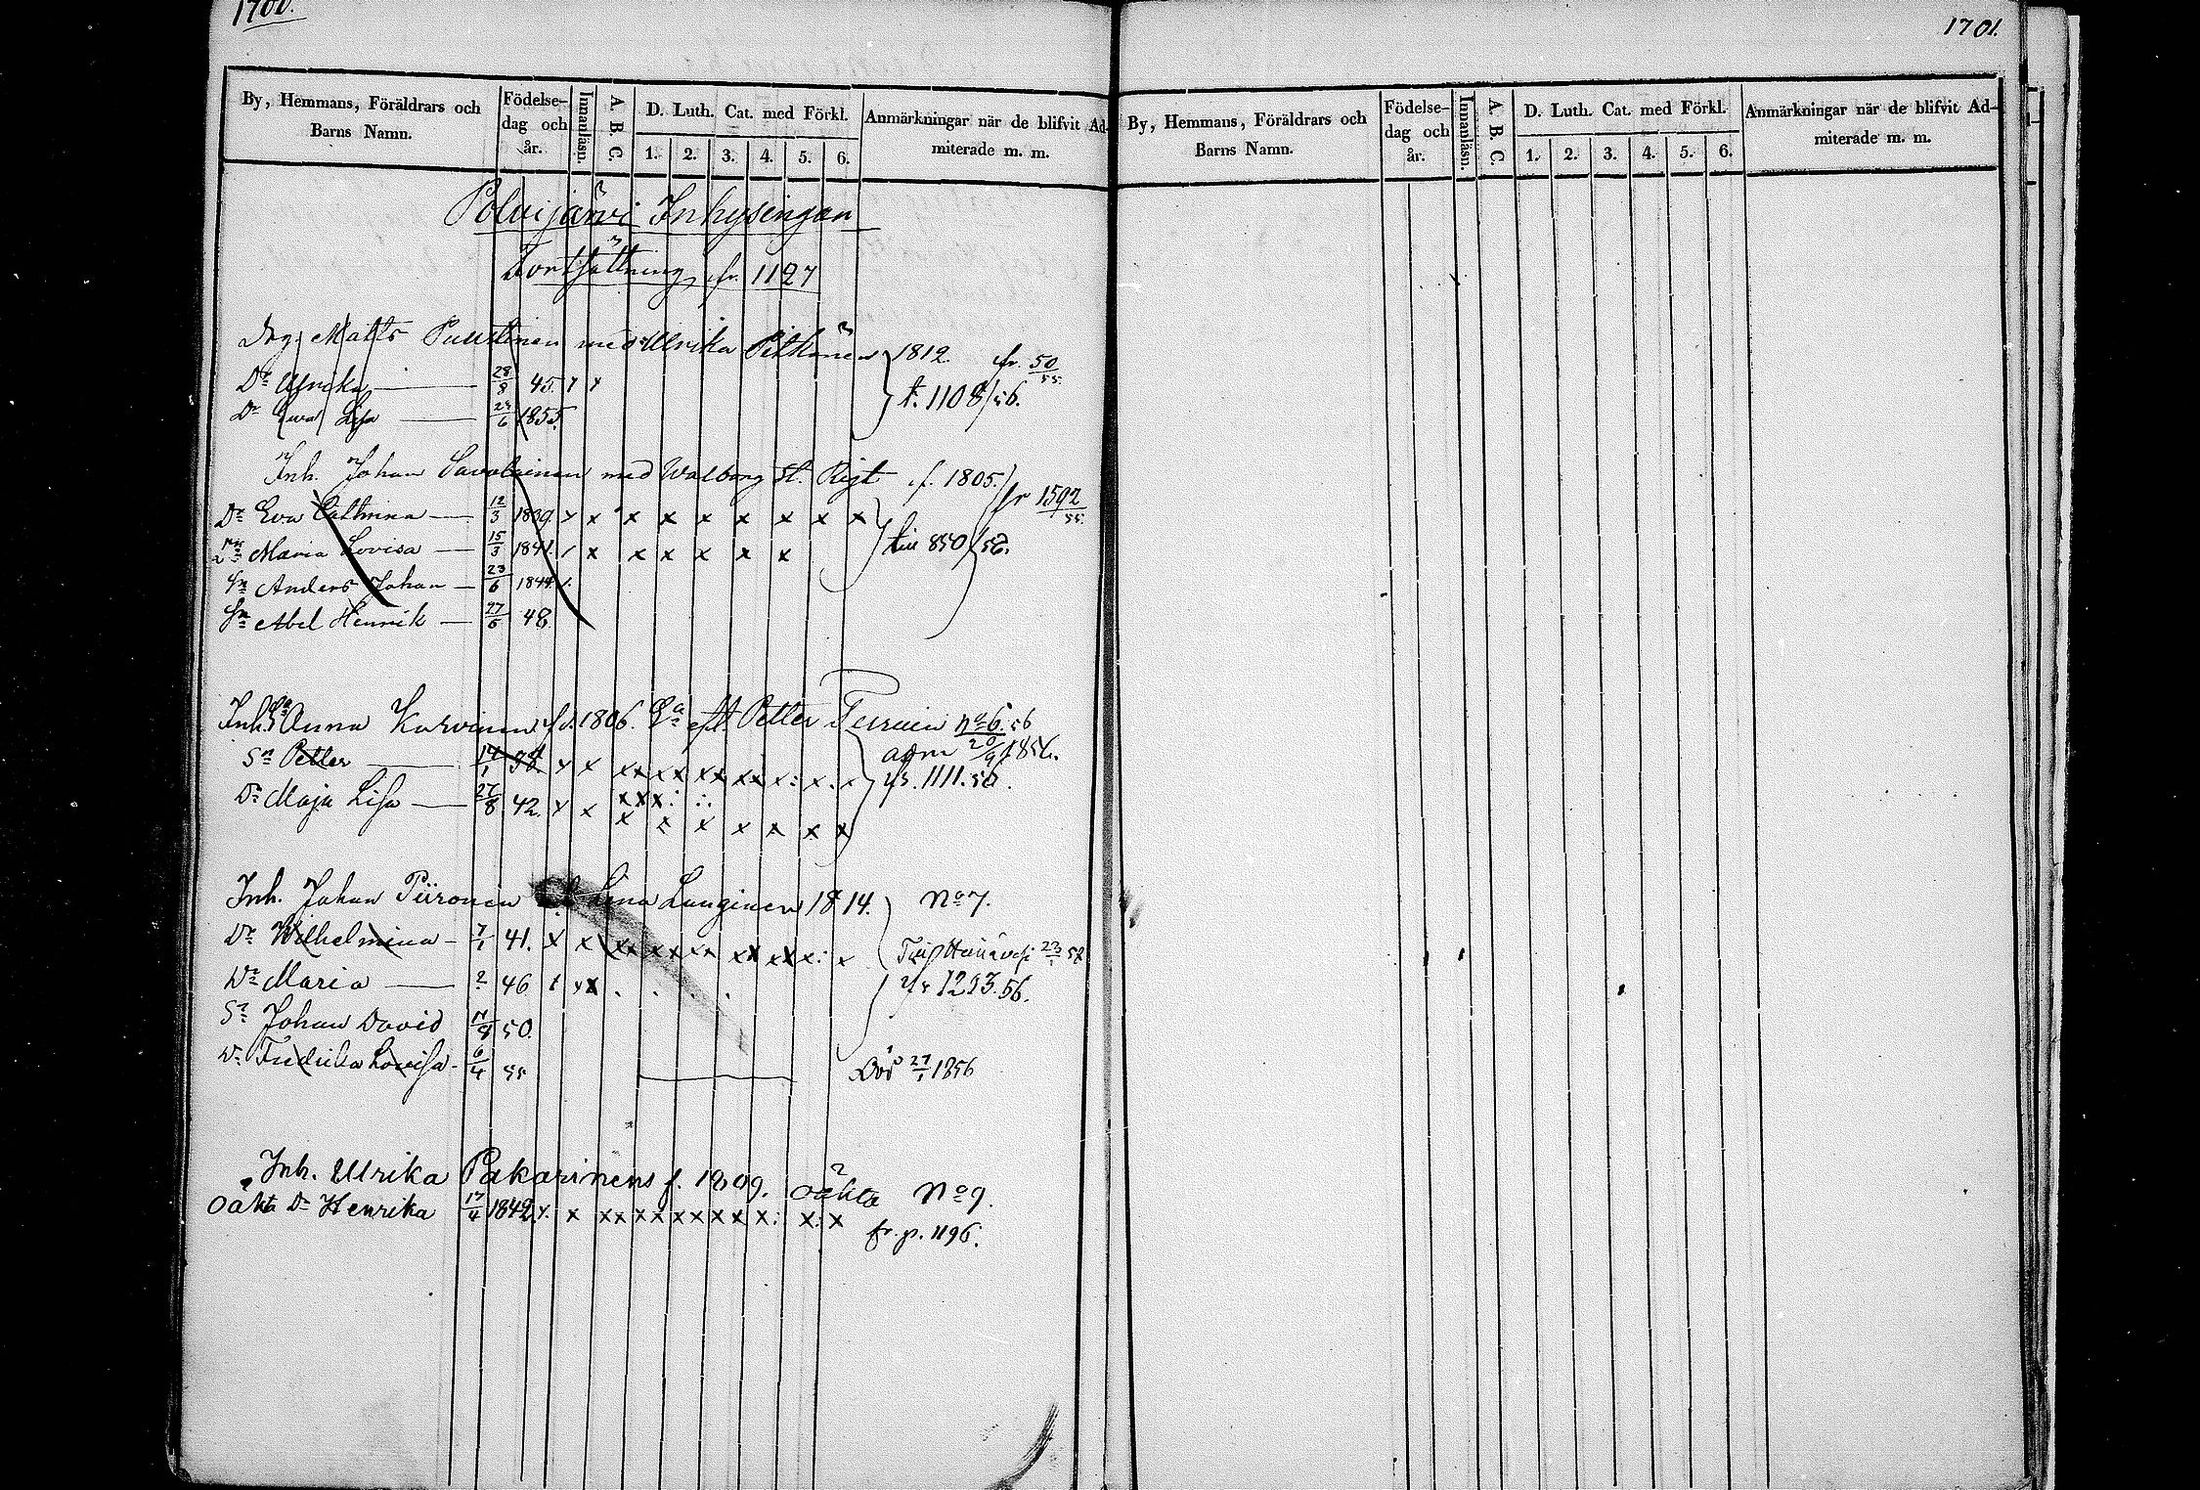 1700.
1701.
By, Hemmans, Föräldrars och Barns Namn.
Födelse-dag och år.
Innanläsn.
A. B. C.
D. Luth. Cat. med Förkl.
1. 2. 3. 4. 5. 6.
Anmärkningar när de blifvit Admiterade m. m.
Polvijärvi Inhysingar
Fortsättning fr. 1127
Drg. Matts Puustinen med Ulrika Pitkänen 1812. fr. 50/55.
Dr Ulrika 28/8 45. x x t. 1108/56.
Dr Eva Lisa 24/6 1855.
Inh. Johan Savolainen med Walborg f. 1805. fr 1592/55.
Dr Eva Cathrina 12/3 1839. x x x x x x x x x
Dr Maria Lovisa 15/3 1841. / x x x x x x till 850/56.
Sn Anders Johan 23/6 1844. x.
Sn Abel Henrik 27/5 48.
Inh. Anna Karvinen fd. 1806. Ea eft. Petter Turuin No 6. 56
Sn Petter 14/1 38. x x xx xx xx xx x: x. x adm 20/9 1856.
xxx: :. 1111. 56.
Dr Maja Lisa 27/8 42. x x x x x x x x x
Inh. Johan Piironen Lena Launginen 1814. No 7.
Dr Wilhelmina 7/1 41. x x xx xx xx xx xx x: x Till Heinävesi 23/1 58
Dr Maria 2 46 t x x . . . . 1293. 56.
Sn Johan David 50.
Dr Fredrika Lovisa 6/4 55 Död 27/1 1856
Inh. Ulrika Pakarinen f. 1809. oäkta No 9.
Oäkta Dr Henrika 17/4 1842. x. x xx xx xx x x x: x: x
fr. p. 1196.
By, Hemmans, Föräldrars och Barns Namn.
Födelse-dag och år.
Innanläsn.
A. B. C.
D. Luth. Cat. med Förkl.
1. 2. 3. 4. 5. 6.
Anmärkningar när de blifvit Admiterade m. m.